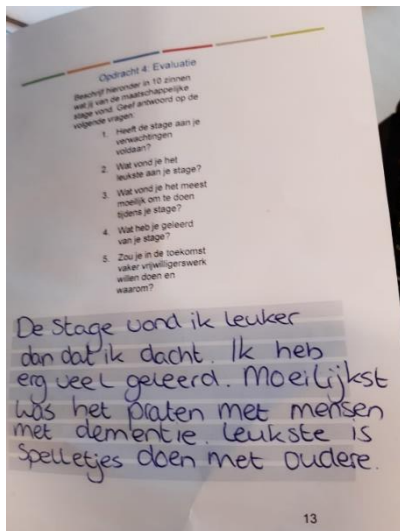 Opdracht 4: Evaluatie
Beschrijf hieronder in 10 zinnen
wat jij van de maatschappelijke
stage vond. Geef antwoord op de
volgende vragen:
1. Heeft de stage aan je
verwachtingen
voldaan?
2. Wat vond je het
leukste aan je stage?
3. Wat vond je het meest
moeilijk om te doen
tijdens je stage?
4. Wat heb je geleerd
van je stage?
5. Zou je in de toekomst
vaker vrijwilligerswerk
willen doen en
waarom?
De Stage vond ik leuker
dan dat ik dacht. Ik heb
erg veel geleerd. Moeilijkst
was het praten met mensen
met dementie. Leukste is
Spelletjes doen met oudere.
13